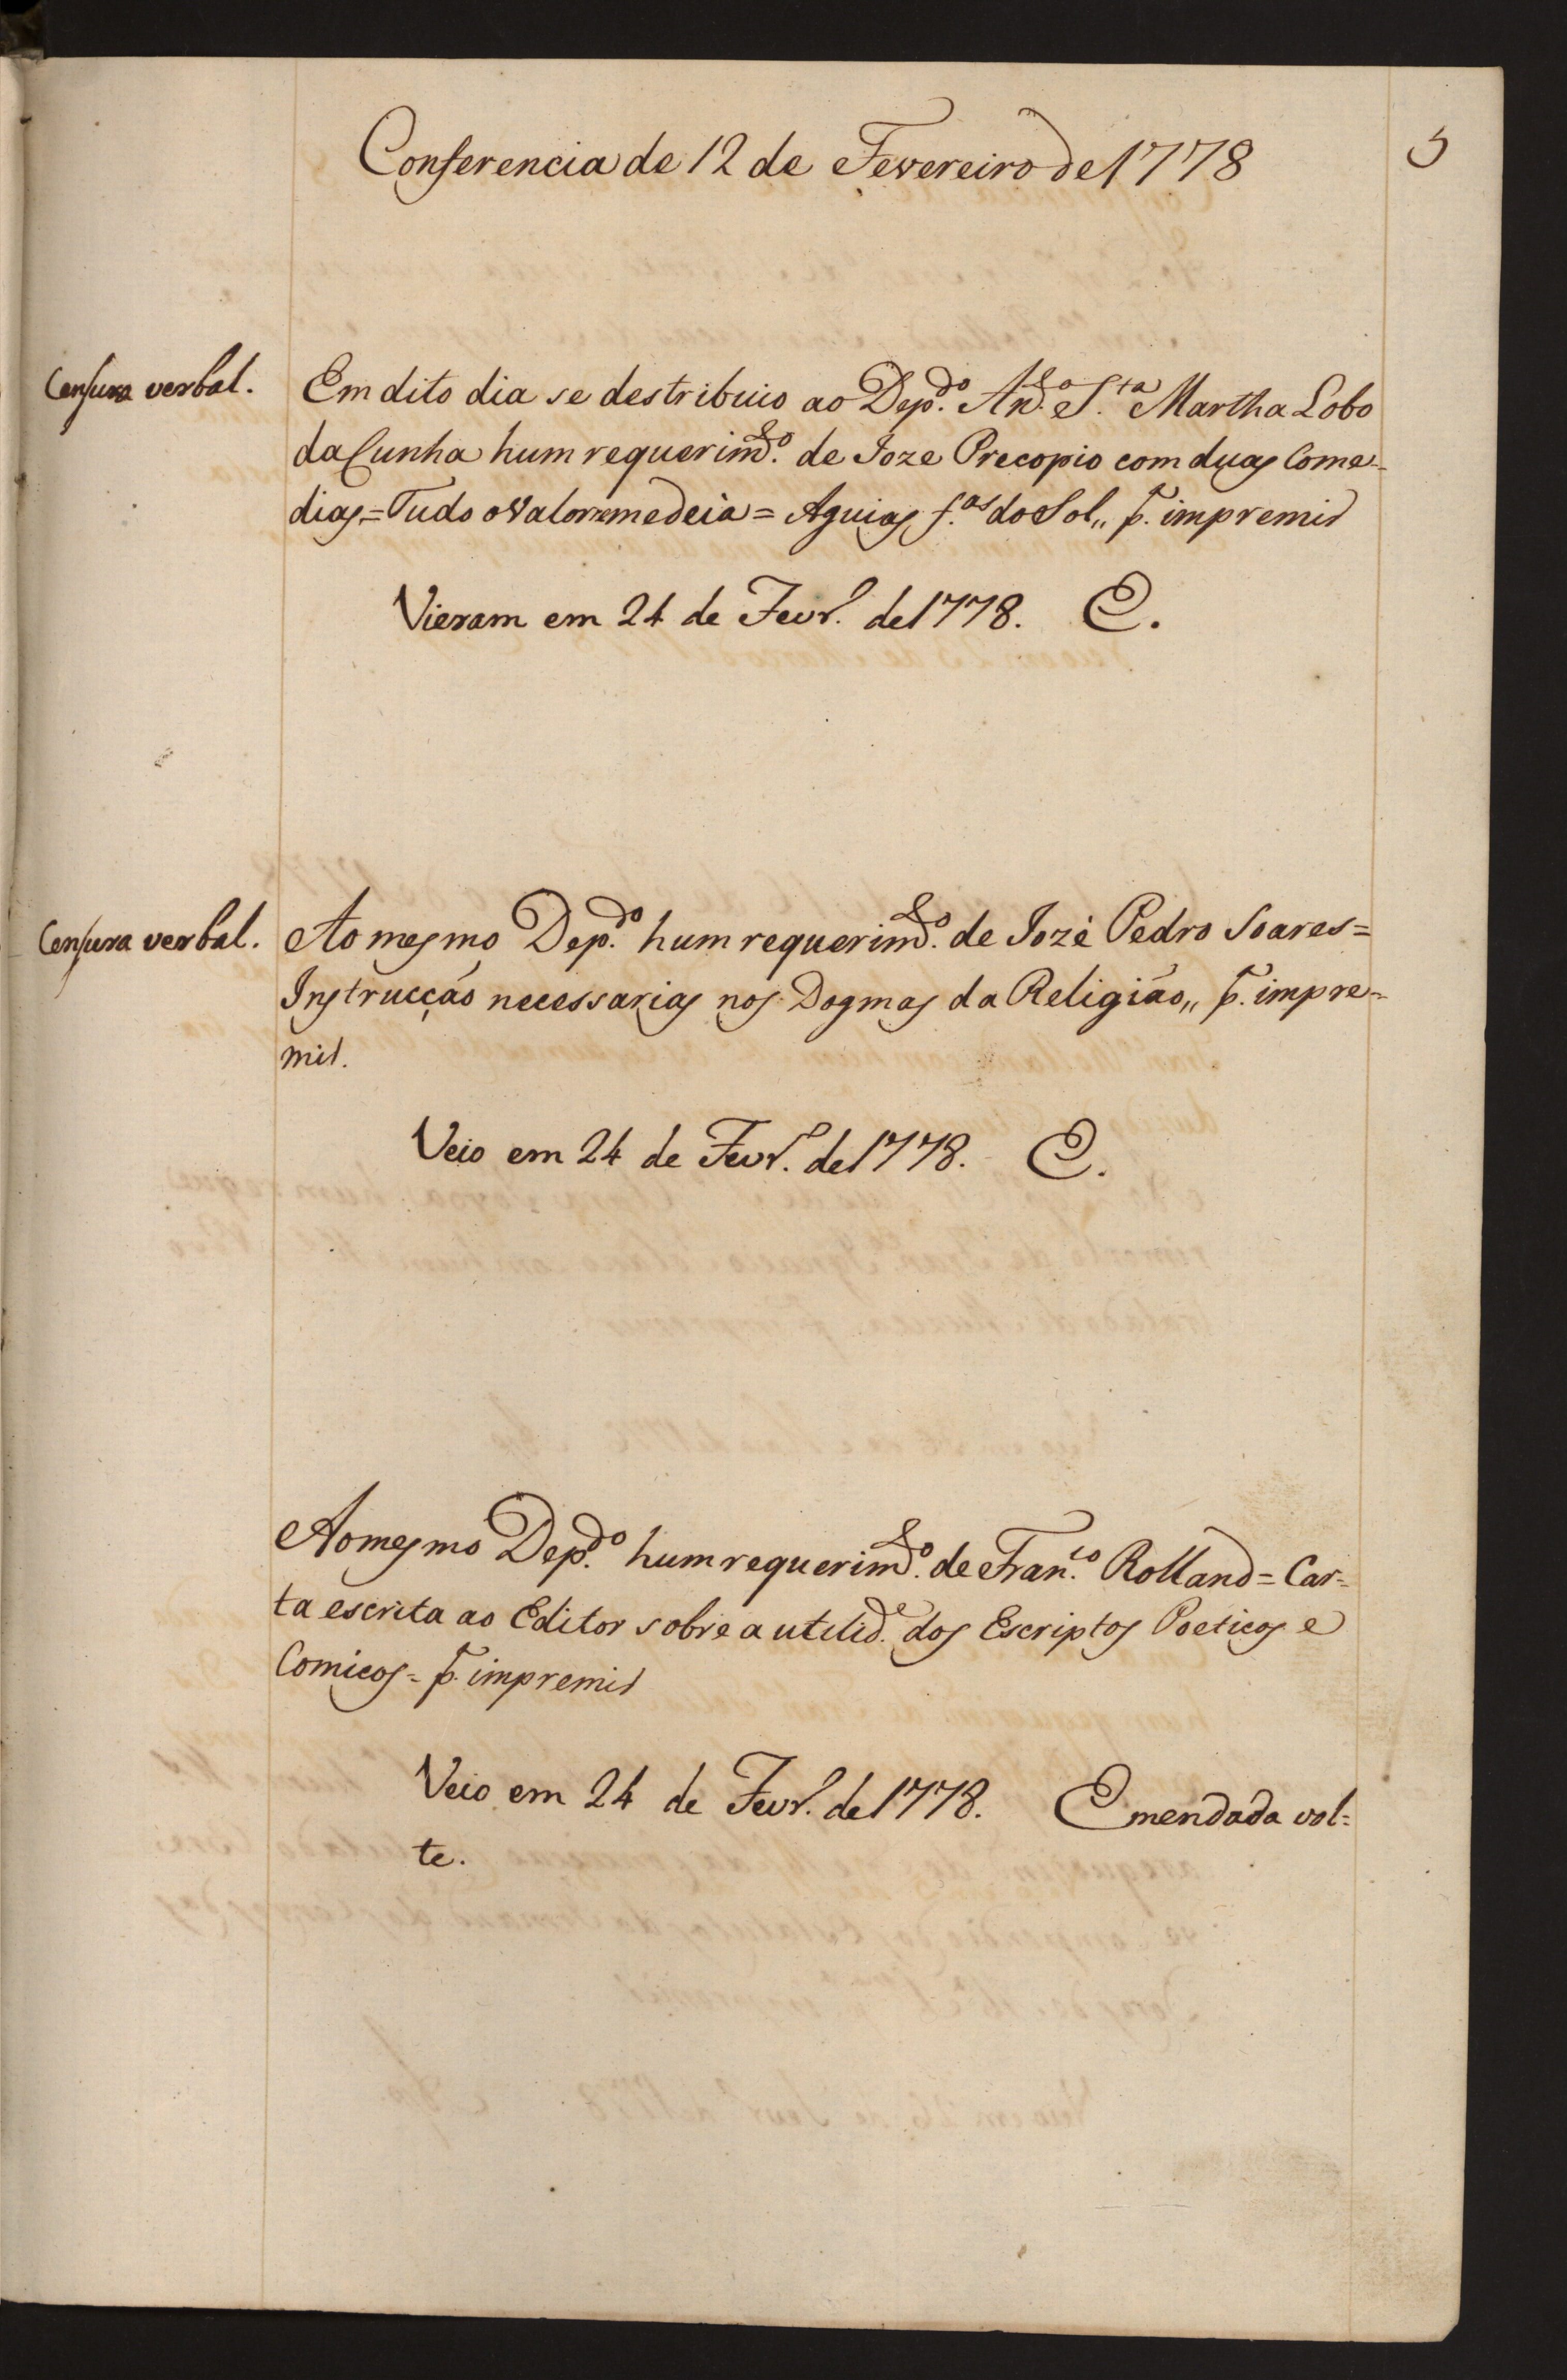 Conferencia de 12 de Fevereiro de 1778
5
Censura verbal.
Em dito dia se destribuio ao Dep.do An.to S.ta Martha Lobo
da Cunha hum requerim.to de Joze Precopio com duas Come-
dias = Tudo o Valor remedeia = Aguias f.as do Sol,, p. impremir
Vieram em 24 de Fevr.o de 1778. E.
Censura verbal.
Ao mesmo Dep.do hum requerim.to de Jozé Pedro Soares =
Instrucção necessarias nos Dogmas da Religião,, p. impre-
mir.
Veio em 24 de Fevr.o de 1778. E.
Ao mesmo Dep.do hum requerim.to de Fran.co Rolland = Car-
ta escrita ao Editor sobre a utilid.e dos Escriptos Poeticos e
Comicos = p. impremir
Veio em 24 de Fevr.o de 1778. Emendada vol=
te.